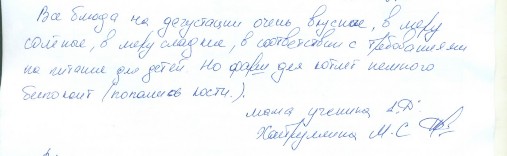 Все блюда на дегустации очень вкусные, в меру
солёные, в меру сладкие, в соответствии с требованиями
на питание для детей. Но фарш для котлет немного
беспокоит (попались кости.).
мама ученика 2 "Д"
Хайруллина М.С